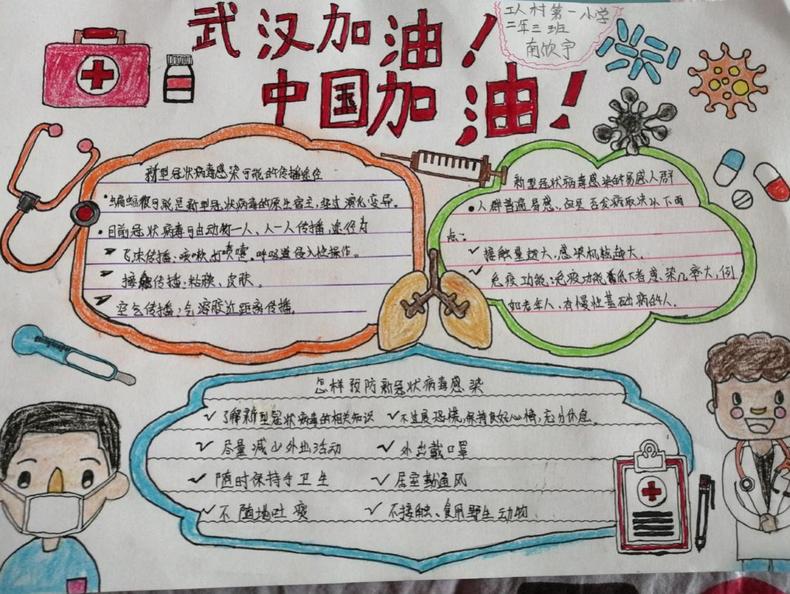 武汉加油！
中国加油！
工人村第一小学
二年三班
南欣宇
新型冠状病毒感染可能的传播途径
•蝙蝠极可能是新型冠状病毒的原生宿主,经过演化变异。
•目前冠状病毒可由动物—人、人—人传播,途径为
飞沫传播:咳嗽、打喷嚏,呼吸道侵入性操作。
接触传播:粘膜、皮肤。
空气传播:气溶胶近距离传播。
新型冠状病毒感染的易感人群
•人群普遍易感,但是否发病取决以下两
点:
✓接触量越大,感染机率越大。
✓免疫功能:免疫功能低下者感染几率大,例
如老年人、有慢性基础病的人。
怎样预防新冠状病毒感染
✓了解新型冠状病毒的相关知识 ✓不过度恐慌,保持良好心情,充分休息。
✓尽量减少外出活动 ✓外出戴口罩
✓随时保持手卫生 ✓居室勤通风
✓不随地吐痰 ✓不接触、食用野生动物